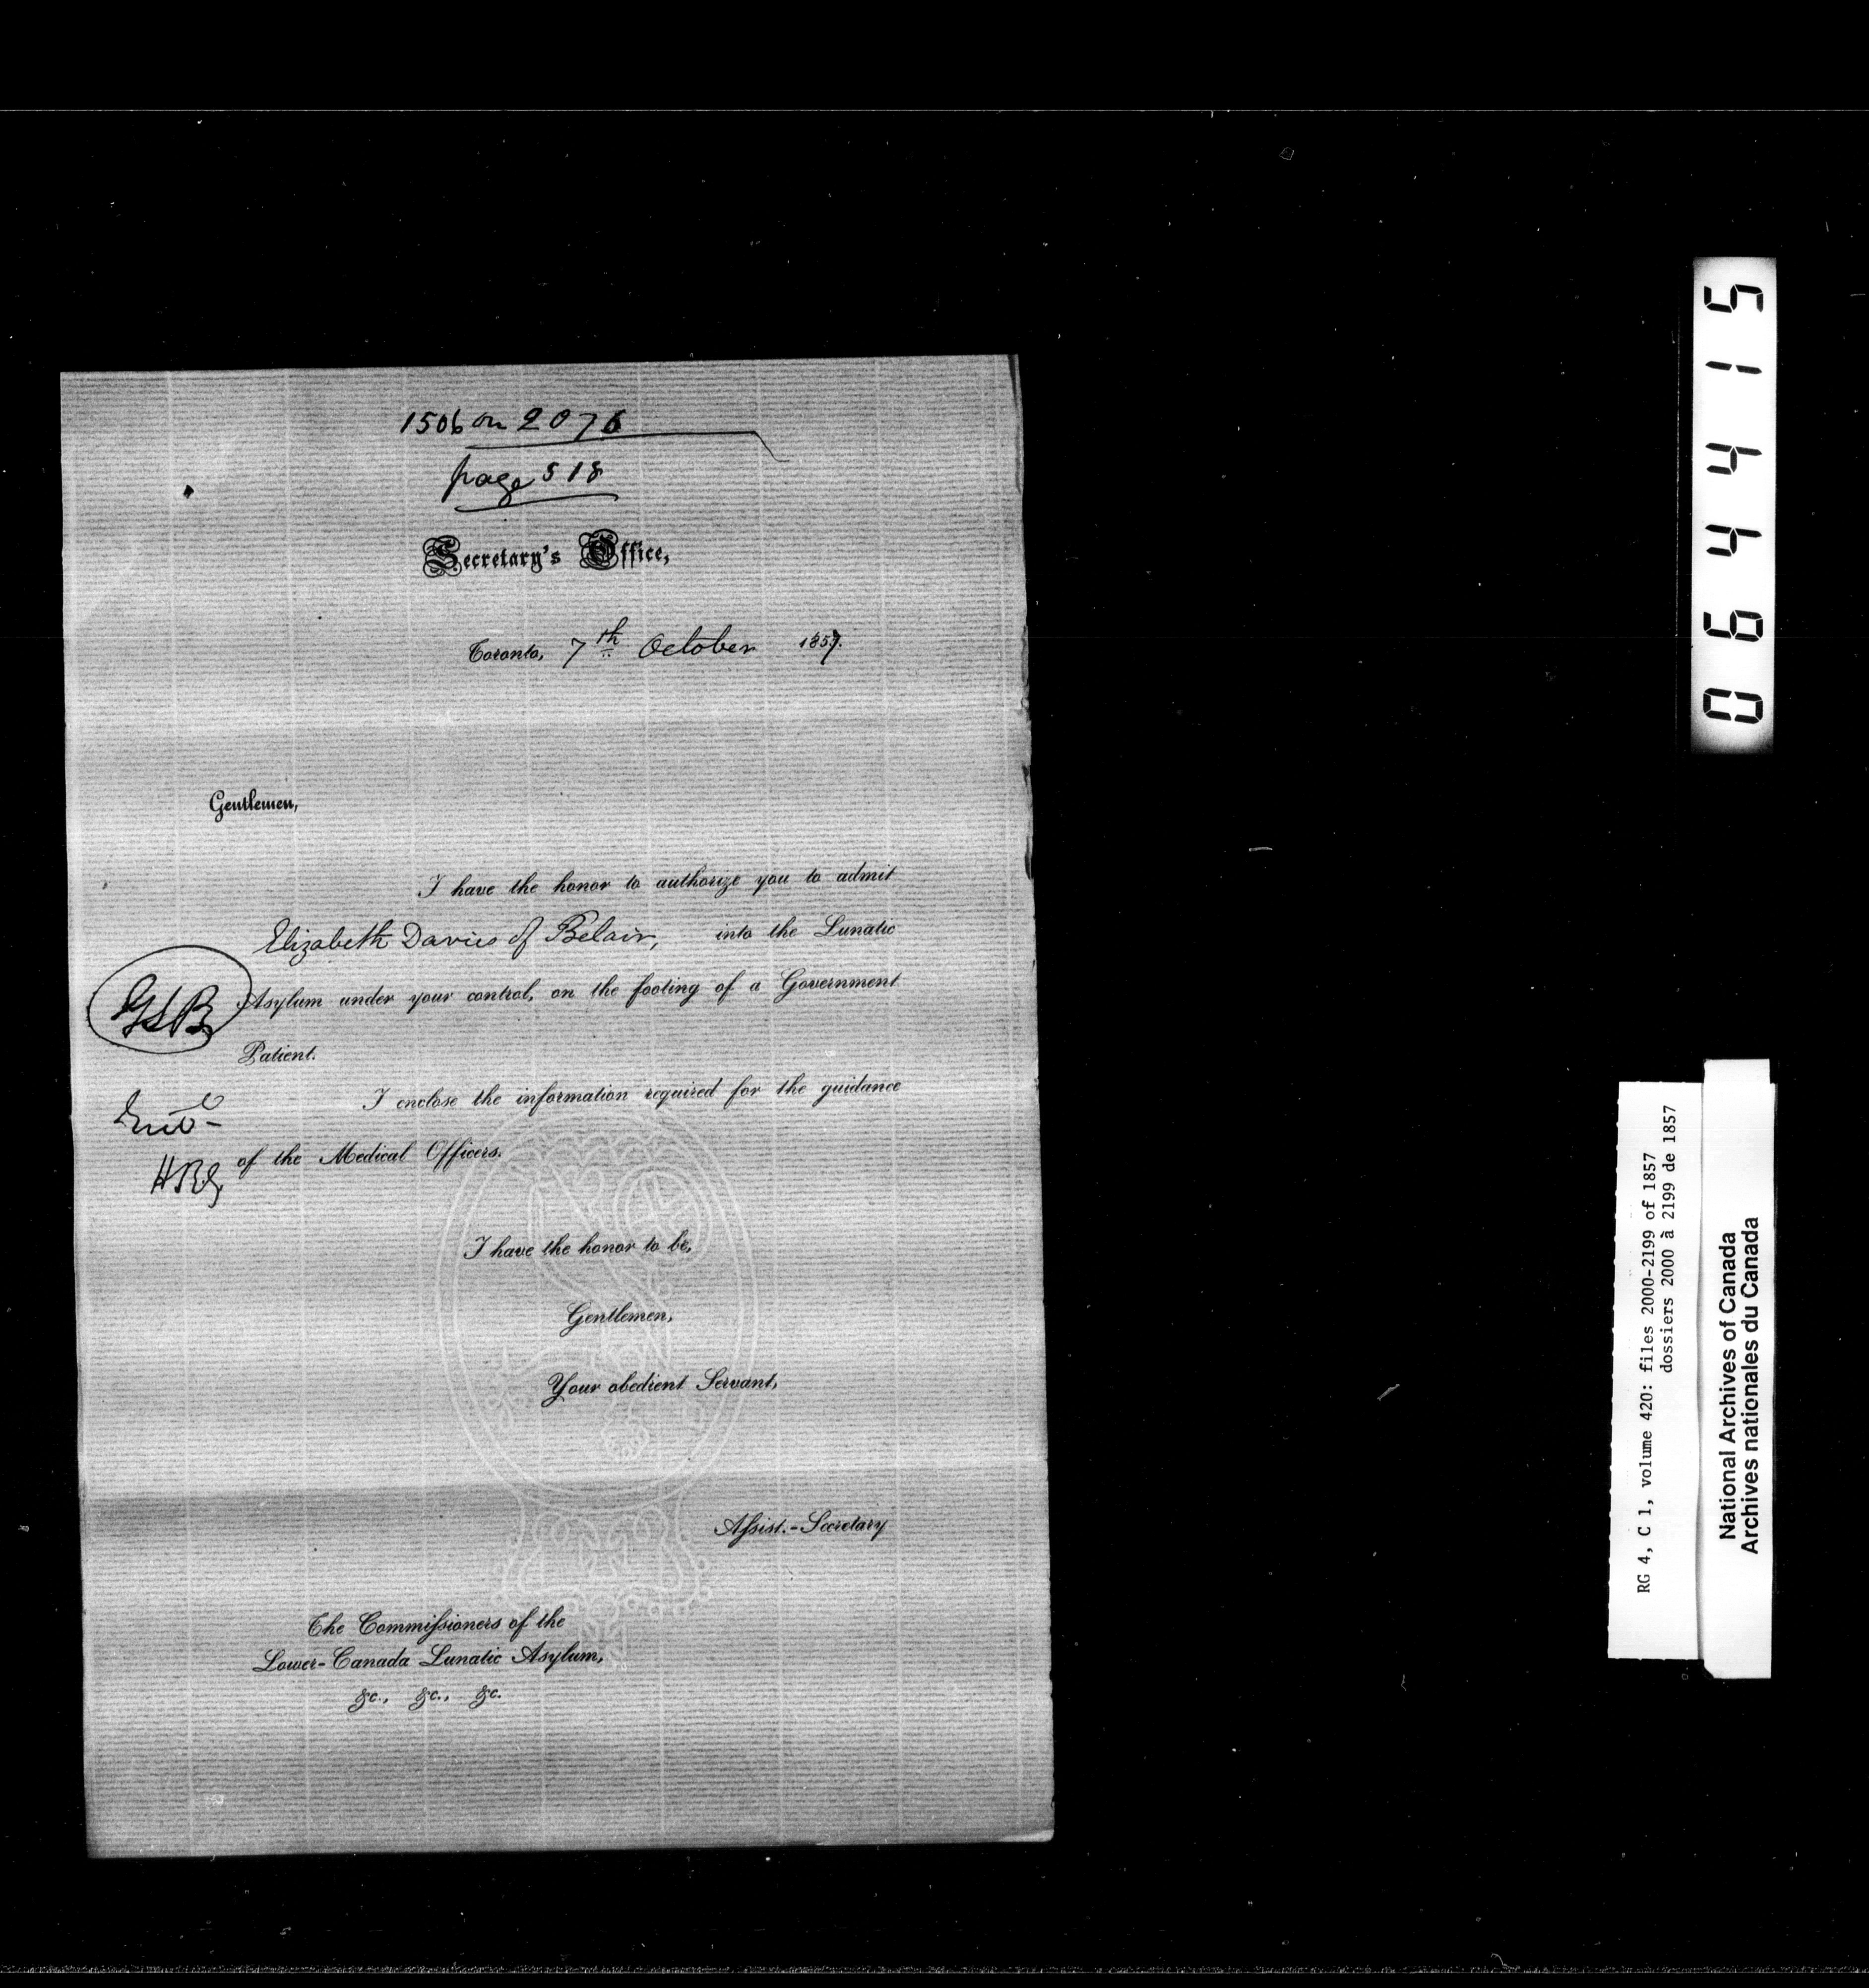 1506 on 2076
page 518
Secretary's Office,
Toronto, 7th October 1857.
Gentlemen,
I have the honor to authorize you to admit
Elizabeth Davies of Belair, into the Lunatic
GSB Asylum under your control, on the footing of a Government
Patient.
I enclose the information required for the guidance
of the Medical Officers.
I have the honor to be,
Gentlemen,
Your obedient Servant,
Assist.-Secretary
The Commissioners of the
Lower-Canada Lunatic Asylum,
&c., &c., &c.
064415
RG 4, C 1, volume 420: files 2000-2199 of 1857
dossiers 2000 à 2199 de 1857
National Archives of Canada
Archives nationales du Canada